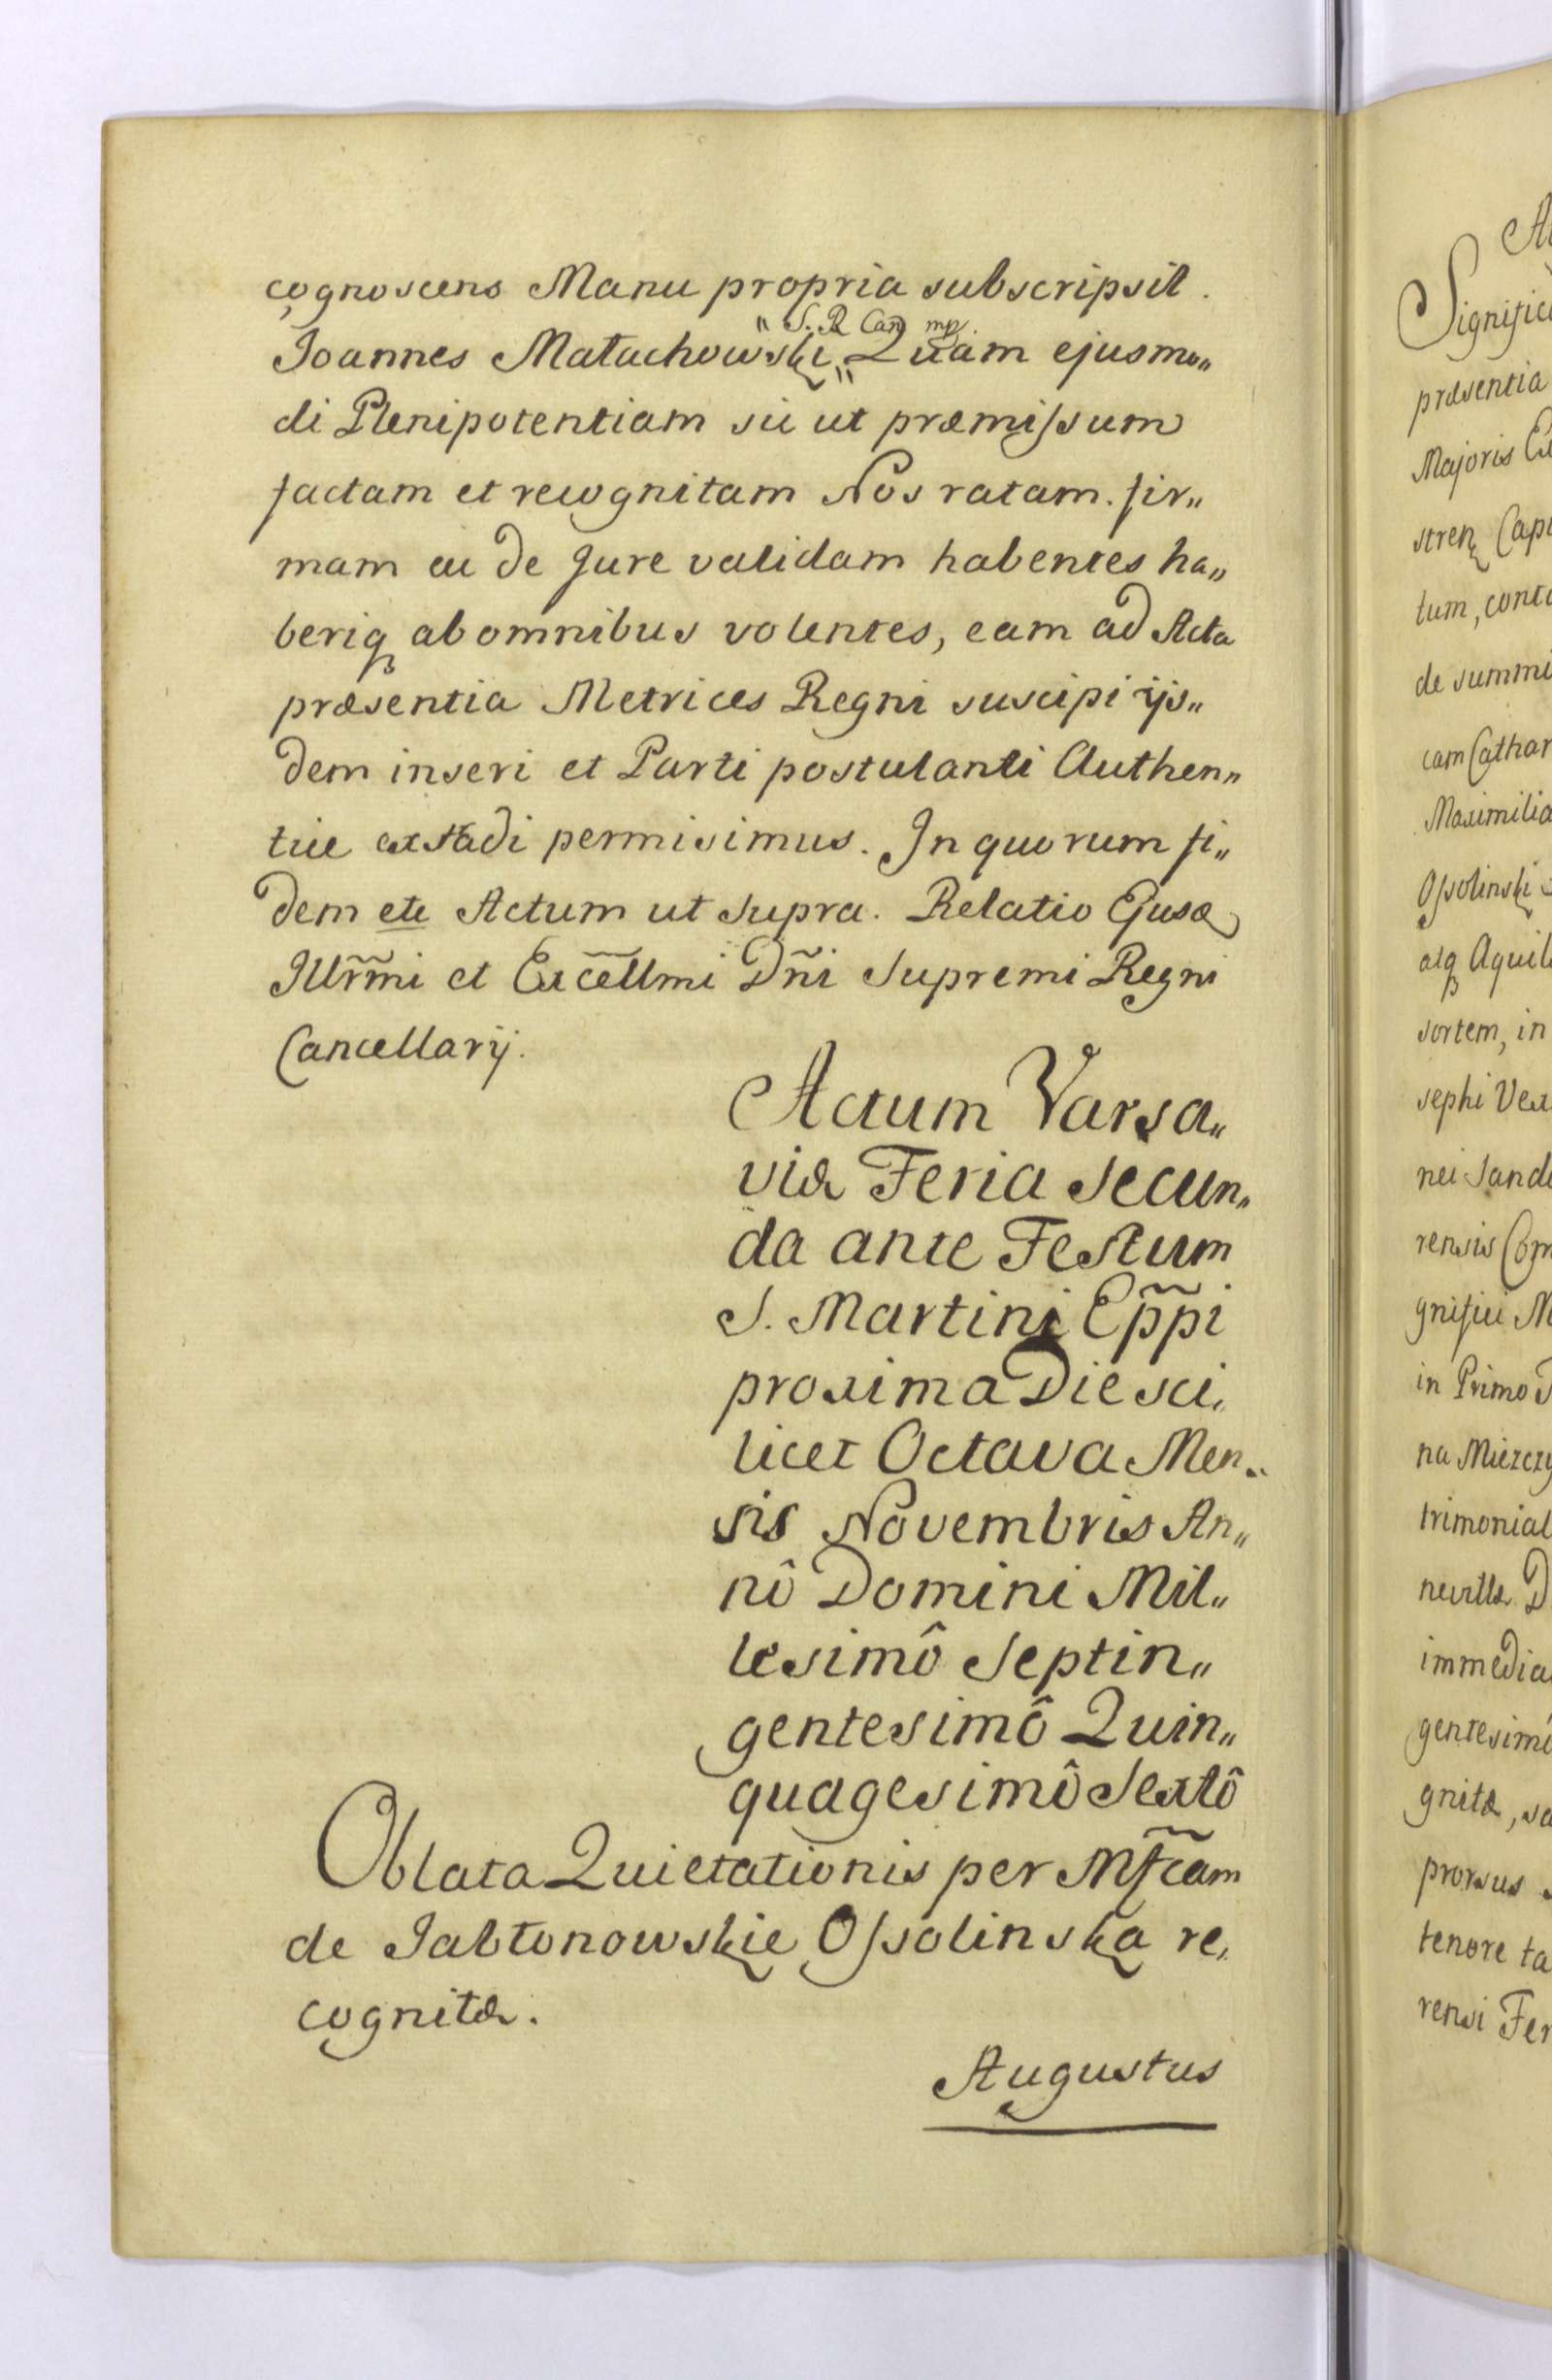 cognoscens Manu propria subscripsit.
" S. R. Can mp.
Joannes Małachowski „ Quam ejusmo„
di Plenipotentiam sic ut præmissum
factam et recognitam Nos ratam. fir„
mam ac de Jure validam habentes ha„
beriq ab omnibus volentes, eam ad Acta
præsentia Metrices Regni suscipi ijs„
dem inseri et Parti postulanti Authen„
tice extradi permisimus. In quorum fi„
dem etc Actum ut supra. Relatio Ejusd
Illr̃mi et Excẽllmi Dñi Supremi Regni
Cancellarij.
Actum Varsa„
viæ Feria Secun„
da ante Festum
S. Martini Ep̃pi
proxima Die sci,
licet Octava Men„
sis Novembris An„
nô Domini Mil„
lesimô Septin„
gentesimô Quin„
quagesimô Sextô
Oblata Quietationis per Mf̃cam
de Jabłonowskie Ossolinska re,
cognitæ.
Augustus
Signific
præsentia
Majoris
stren Cap
tum, cont
de summi
cam Cathar
Maximilia
Ossolinski
atq Aquil
sortem, in
sephi Vex
nei Sand
rensis Com
gnifici M
in Primo
na Mierczy
trimonial
nevillæ D
immedia
gentesim
gnitæ, sa
prorsus
tenore ta
rensi Fer